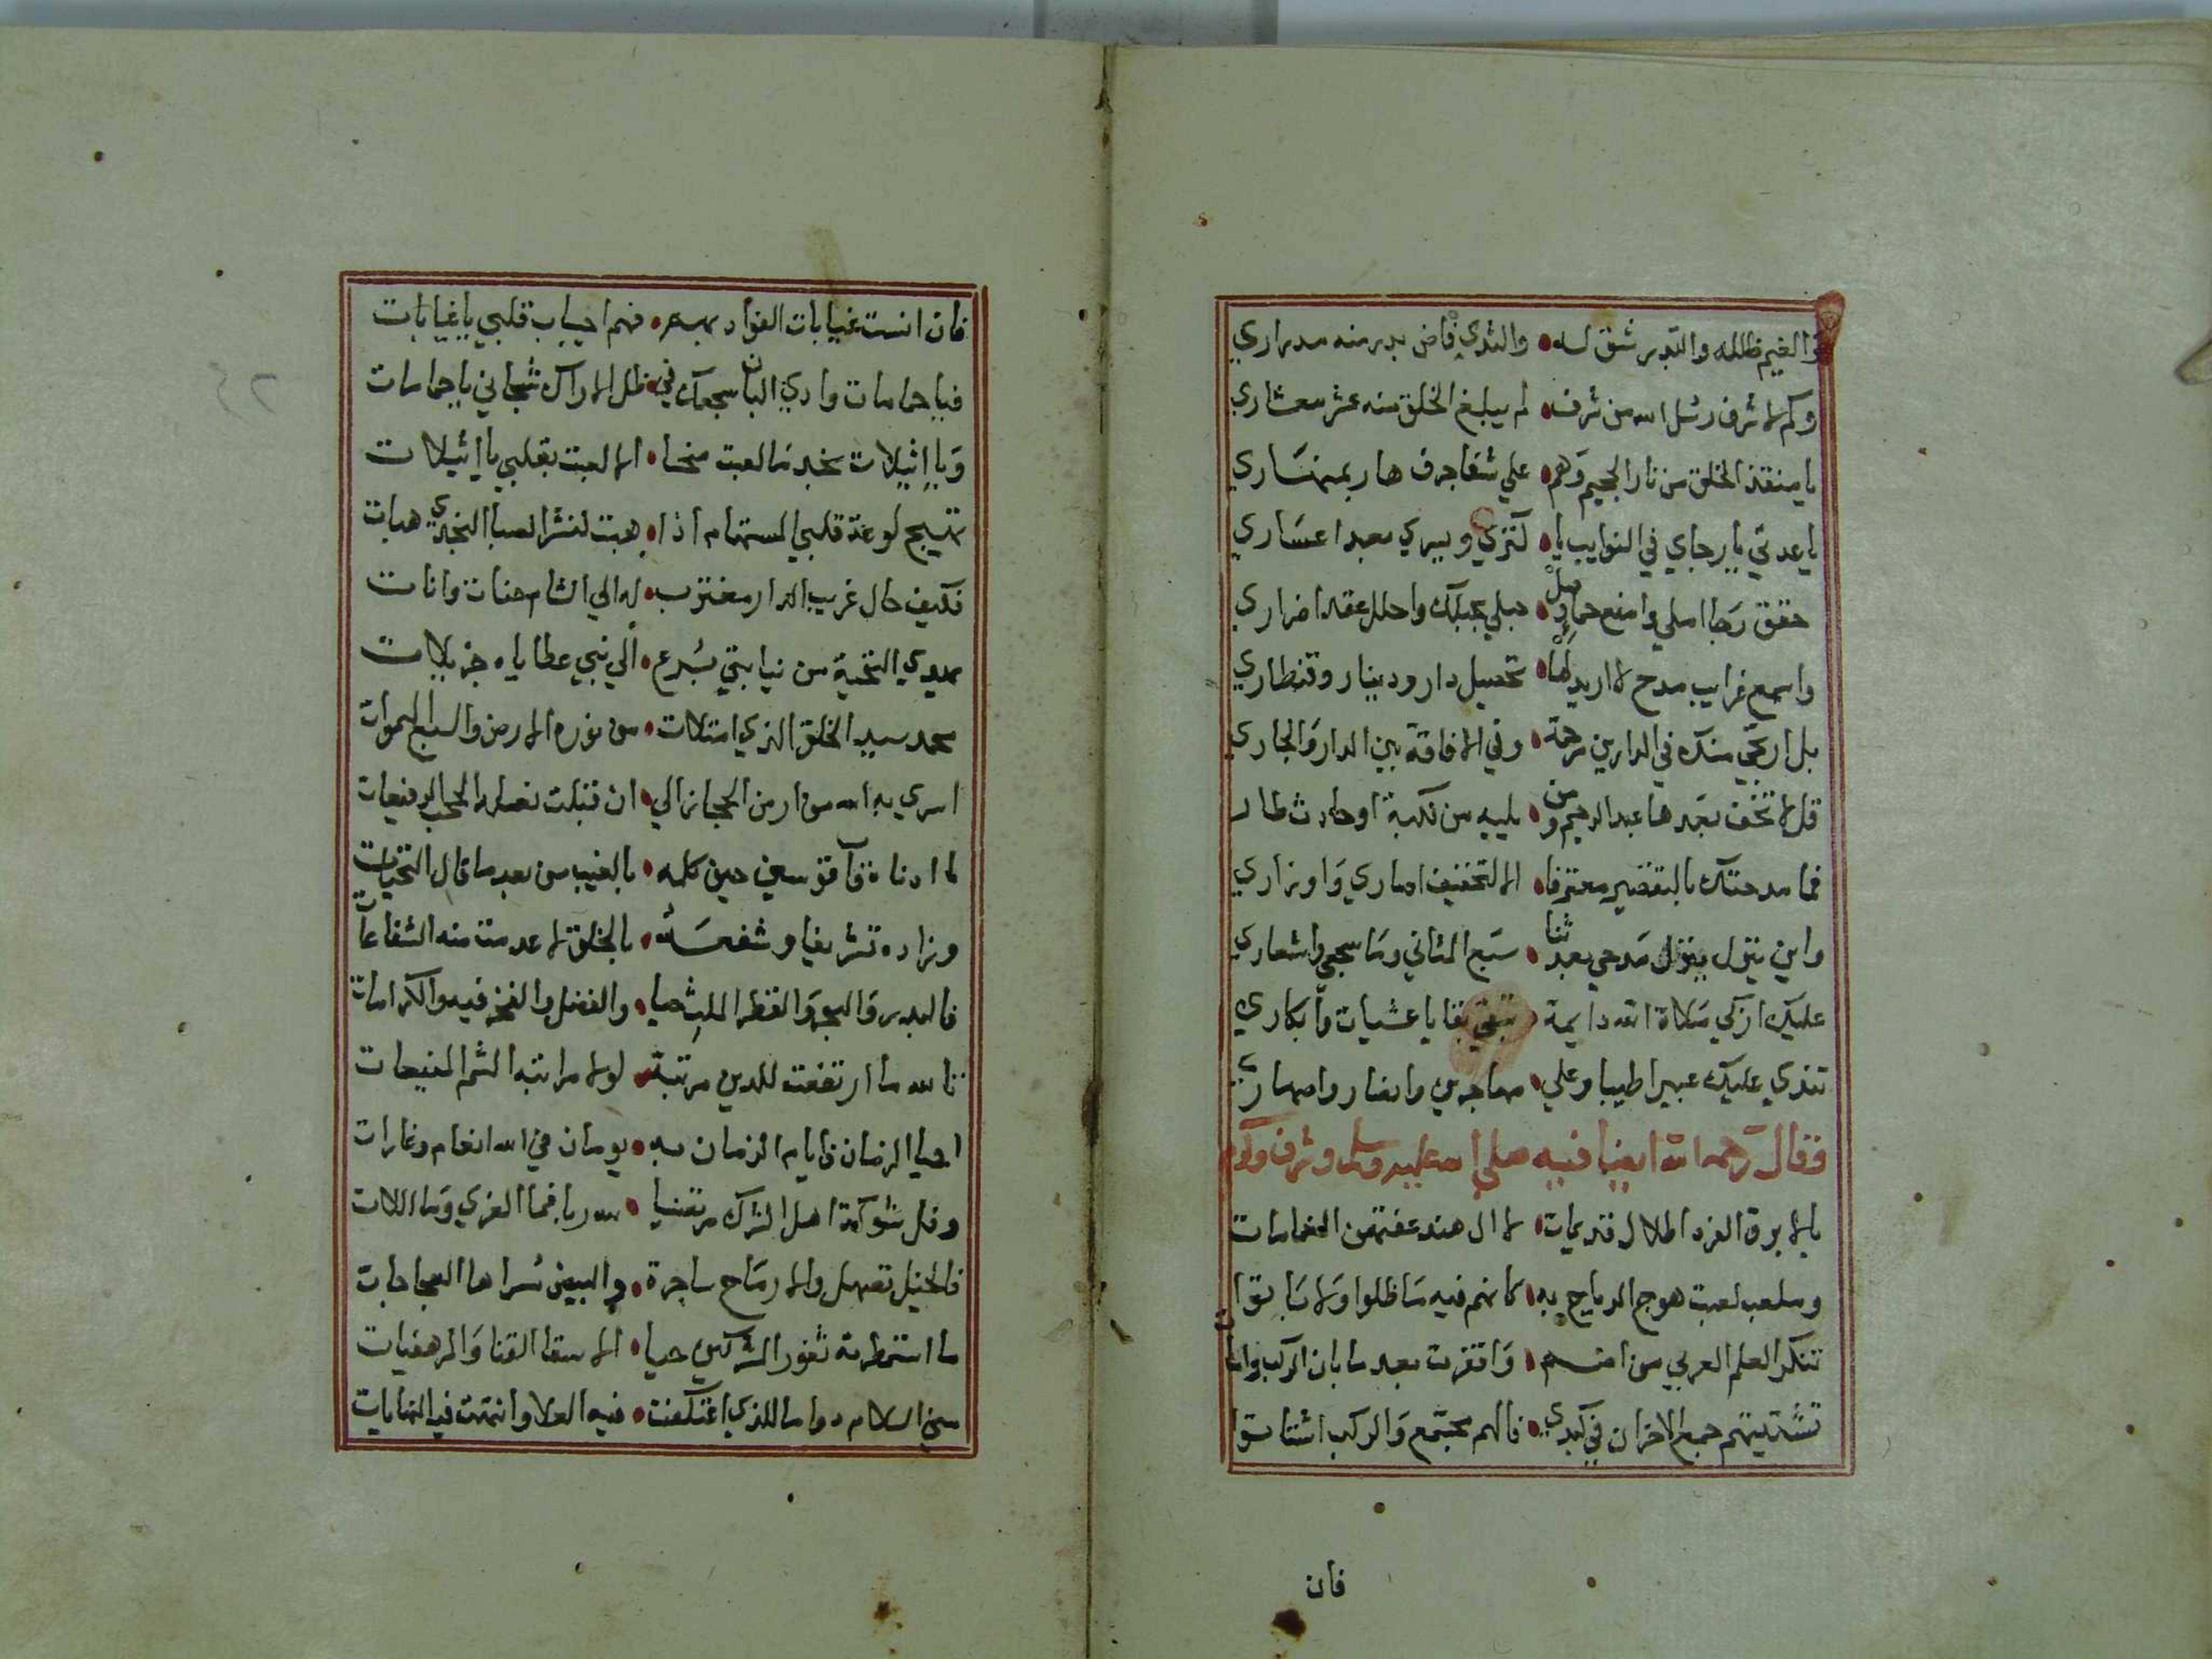 والغيم ظلله والبدر شق له • والثدي فاض بدر منه مدراري
وكم لاشرف رسل الله من شرف • لم يبلغ الخلق منه عشر معشاري
يا منقذ الخلق من نار الجحيم وهم • علي شفا جرف هار بمنهاري
يا عدتي يا رجاي في النوايب يا • كنزي ويسري بعد اعساري
حقق رجا املي وامنع حماد وصل • حبلي بحبلك واحلل عقد اضراري
واسمع غرايب مدح لا اريد لها • تحصيل دار ودينار وقنطاري
بل ارتجي منك في الدارين مرحمة • وفي الافاقة بين الدار والجاري
قل لا تخف بعدها عبد الرحيم ومن • يليه من نكبة او حادث طار
فما مدحتك بالتقصير معترفا • الا لتخفيف اصاري واوزاري
واين ينزل مدحي بعد ثنا • سبع المثاني وما سجعي واشعاري
عليك ازكي صلاة الله دايمة • تبقي بقايا عشيات وابكاري
تندي عليك عبيرا طيبا وعلي • مهاجرين وانصار واصهاري
فقال رحمه الله ايضا فيه صلي الله عليه وسلم وشرف وكرم
بالابرق الفرد اطلال قديمات • لال هند عفتهن الغمامات
وملعب لعبت هوج الرياح به • كانهم فيه ما ظلوا ولا باتوا
تنكر العلم الغربي من اضم • واقفرت بعد ما بان الركب
تشتيتهم جمع الاحزان في كبدي • فالهم مجتمع والركب اشتاتوا
فان
فان انست غيابات الفواد بهم • فهم احباب قلبي يا غيابات
فيا حمامات وادي البان سجعك في • ظل الاراك شجاني يا حمامات
ويا اثيلات نجد ما لعبت ضحا • الا لعبت بقلبي يا اثيلات
تهيج لوعة قلبي المستهام اذا • هبت لنشر الصبا النجدي هبات
فكيف حال غريب الدار مغترب • له الي الشام حنات وانات
يهدي التحية من نيابتي برع • الي نبي عطاياه جزيلات
محمد سيد الخلق الذي امتلات • من نوره الارض والسبع السموات
اسري به الله من ارض الحجاز الي • ان قبلت نعله الحجب الرفيعات
لما ادناه قاب قوسين حين كلمه • بالغيب من بعد ما قال التحيات
وزاده تشريفا وشفعه • بالخلق لا عدمت منه الشفاعات
فالبدر والبحر والقطر الملث حيا • والفضل والفخر فيه والكرامات
تالله ما ارتفعت للدين مرتبة • لولا مراتبه الشم المنيعات
احيا الزمان فايام الزمان به • يومان في الله انعام وغارات
وفل شوكة اهل الشرك مرتضيا • لله ربا فما العزي وما اللات
فالخيل تصهل والارماح ساجرة • والبيض العجاجات
ما استمطرت ثغور المشركين حيا • الا سقا القنا والمرهفيات
مني السلام دواما للذي اعتكفت • فيه العلا وانتهت فيه النهايات